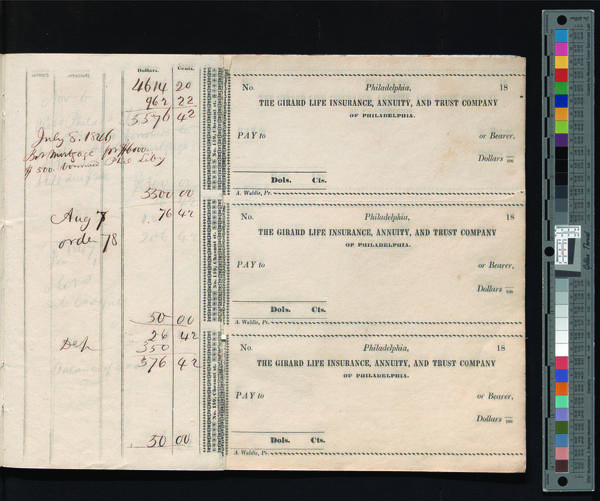 Dollars. Cents.
4614 20
962 22
5576 42
July 8. 1846
Bot mortgage for $6000.
$500. borrowed
5500 00
Aug 7
76 42
order 78
50 00
26 42
Dep 350
376 42
50 00
No. 159, Chesnut st.
No. Philadelphia, 18
THE GIRARD LIFE INSURANCE, ANNUITY, AND TRUST COMPANY
OF PHILADELPHIA.
PAY to or Bearer,
Dollars /100
Dols. Cts.
A. Waldie, Pr.
No. 159, Chesnut st.
No. Philadelphia, 18
THE GIRARD LIFE INSURANCE, ANNUITY, AND TRUST COMPANY
OF PHILADELPHIA.
PAY to or Bearer,
Dollars /100
Dols. Cts.
A. Waldie, Pr.
No. 159, Chesnut st.
No. Philadelphia, 18
THE GIRARD LIFE INSURANCE, ANNUITY, AND TRUST COMPANY
OF PHILADELPHIA.
PAY to or Bearer,
Dollars /100
Dols. Cts.
A. Waldie, Pr.